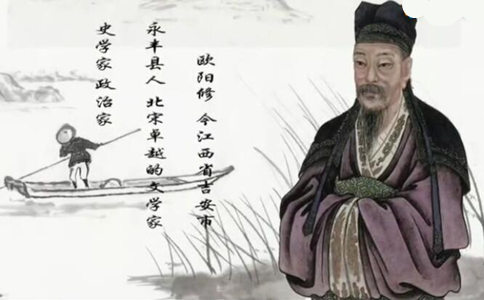 欧阳修 今江西省吉安市
永丰县人 北宋卓越的文学家
史学家 政治家